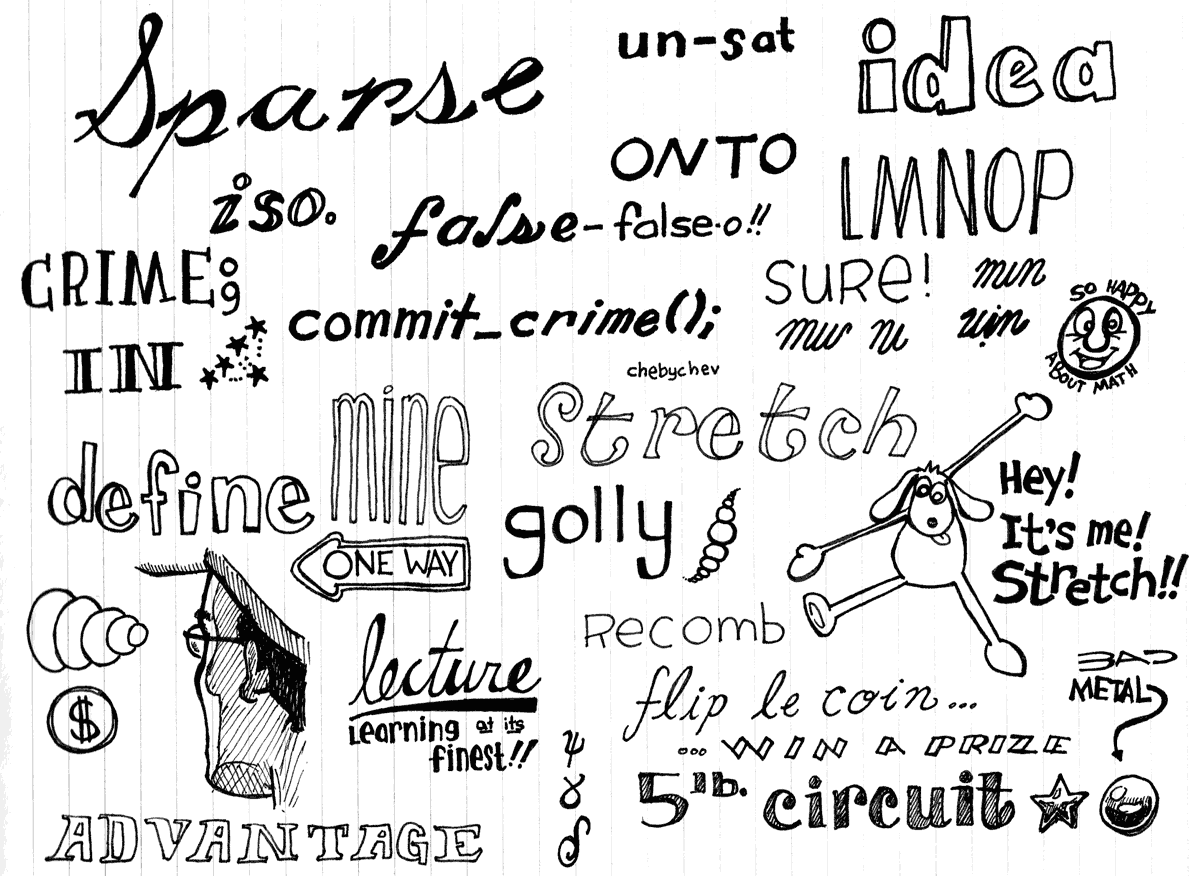 Sparse
un-sat
idea
ONTO
LMNOP
iso.
false-false-o!!
CRIME;
SURE!
min
SO HAPPY
ABOUT MATH
commit_crime();
IN
chebychev
mine
Stretch
define
golly
Hey!
It's me!
Stretch!!
ONE WAY
Recomb
lecture
Learning at its
finest!!
flip le coin...
BAD
METAL
$
... WIN A PRIZE
ψ
γ
δ
5 lb. circuit
ADVANTAGE